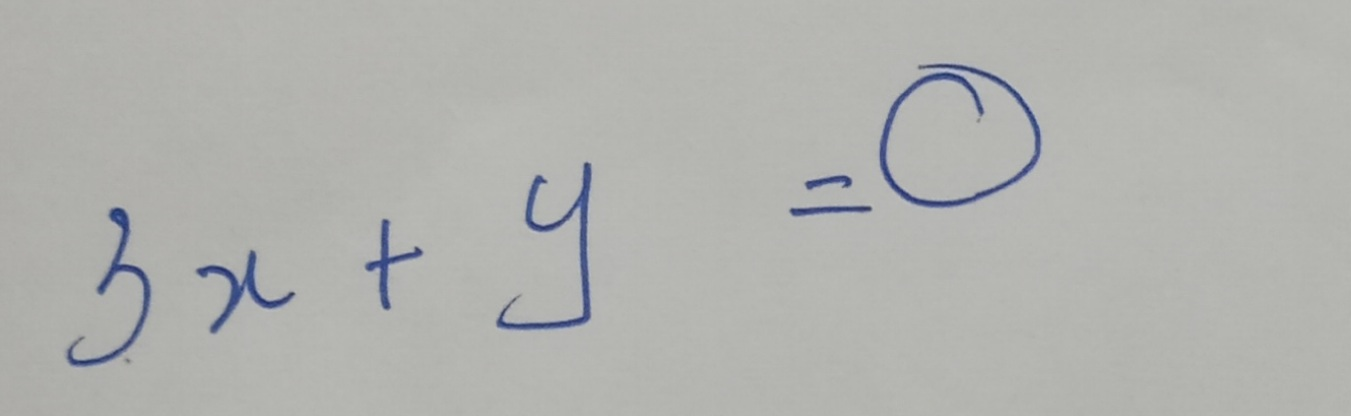 3x + y = 0